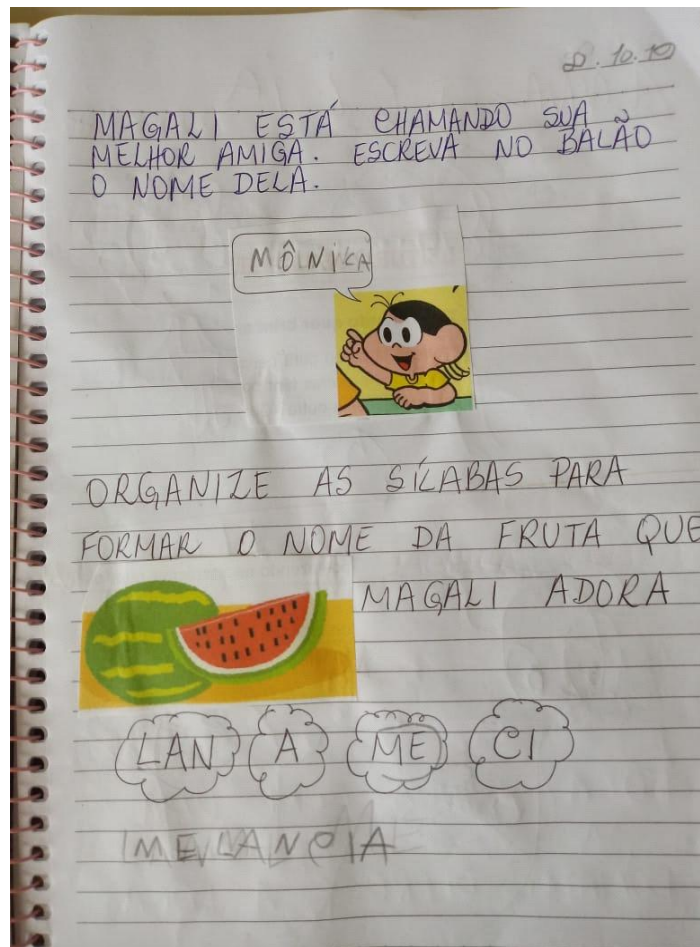 D. 10.10
MAGALI ESTÁ CHAMANDO SUA
MELHOR AMIGA. ESCREVA NO BALÃO
O NOME DELA.
MÔNiCA
ORGANIZE AS SÍLABAS PARA
FORMAR O NOME DA FRUTA QUE
MAGALI ADORA
LAN A ME CI
MELANCIA